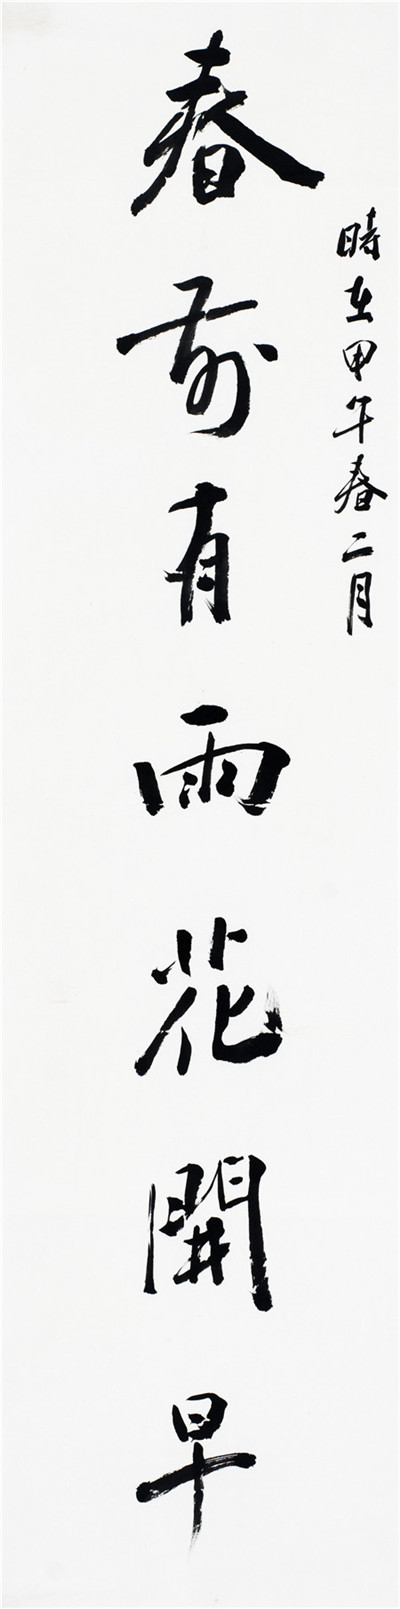 時在甲午春二月
春前有雨花開早